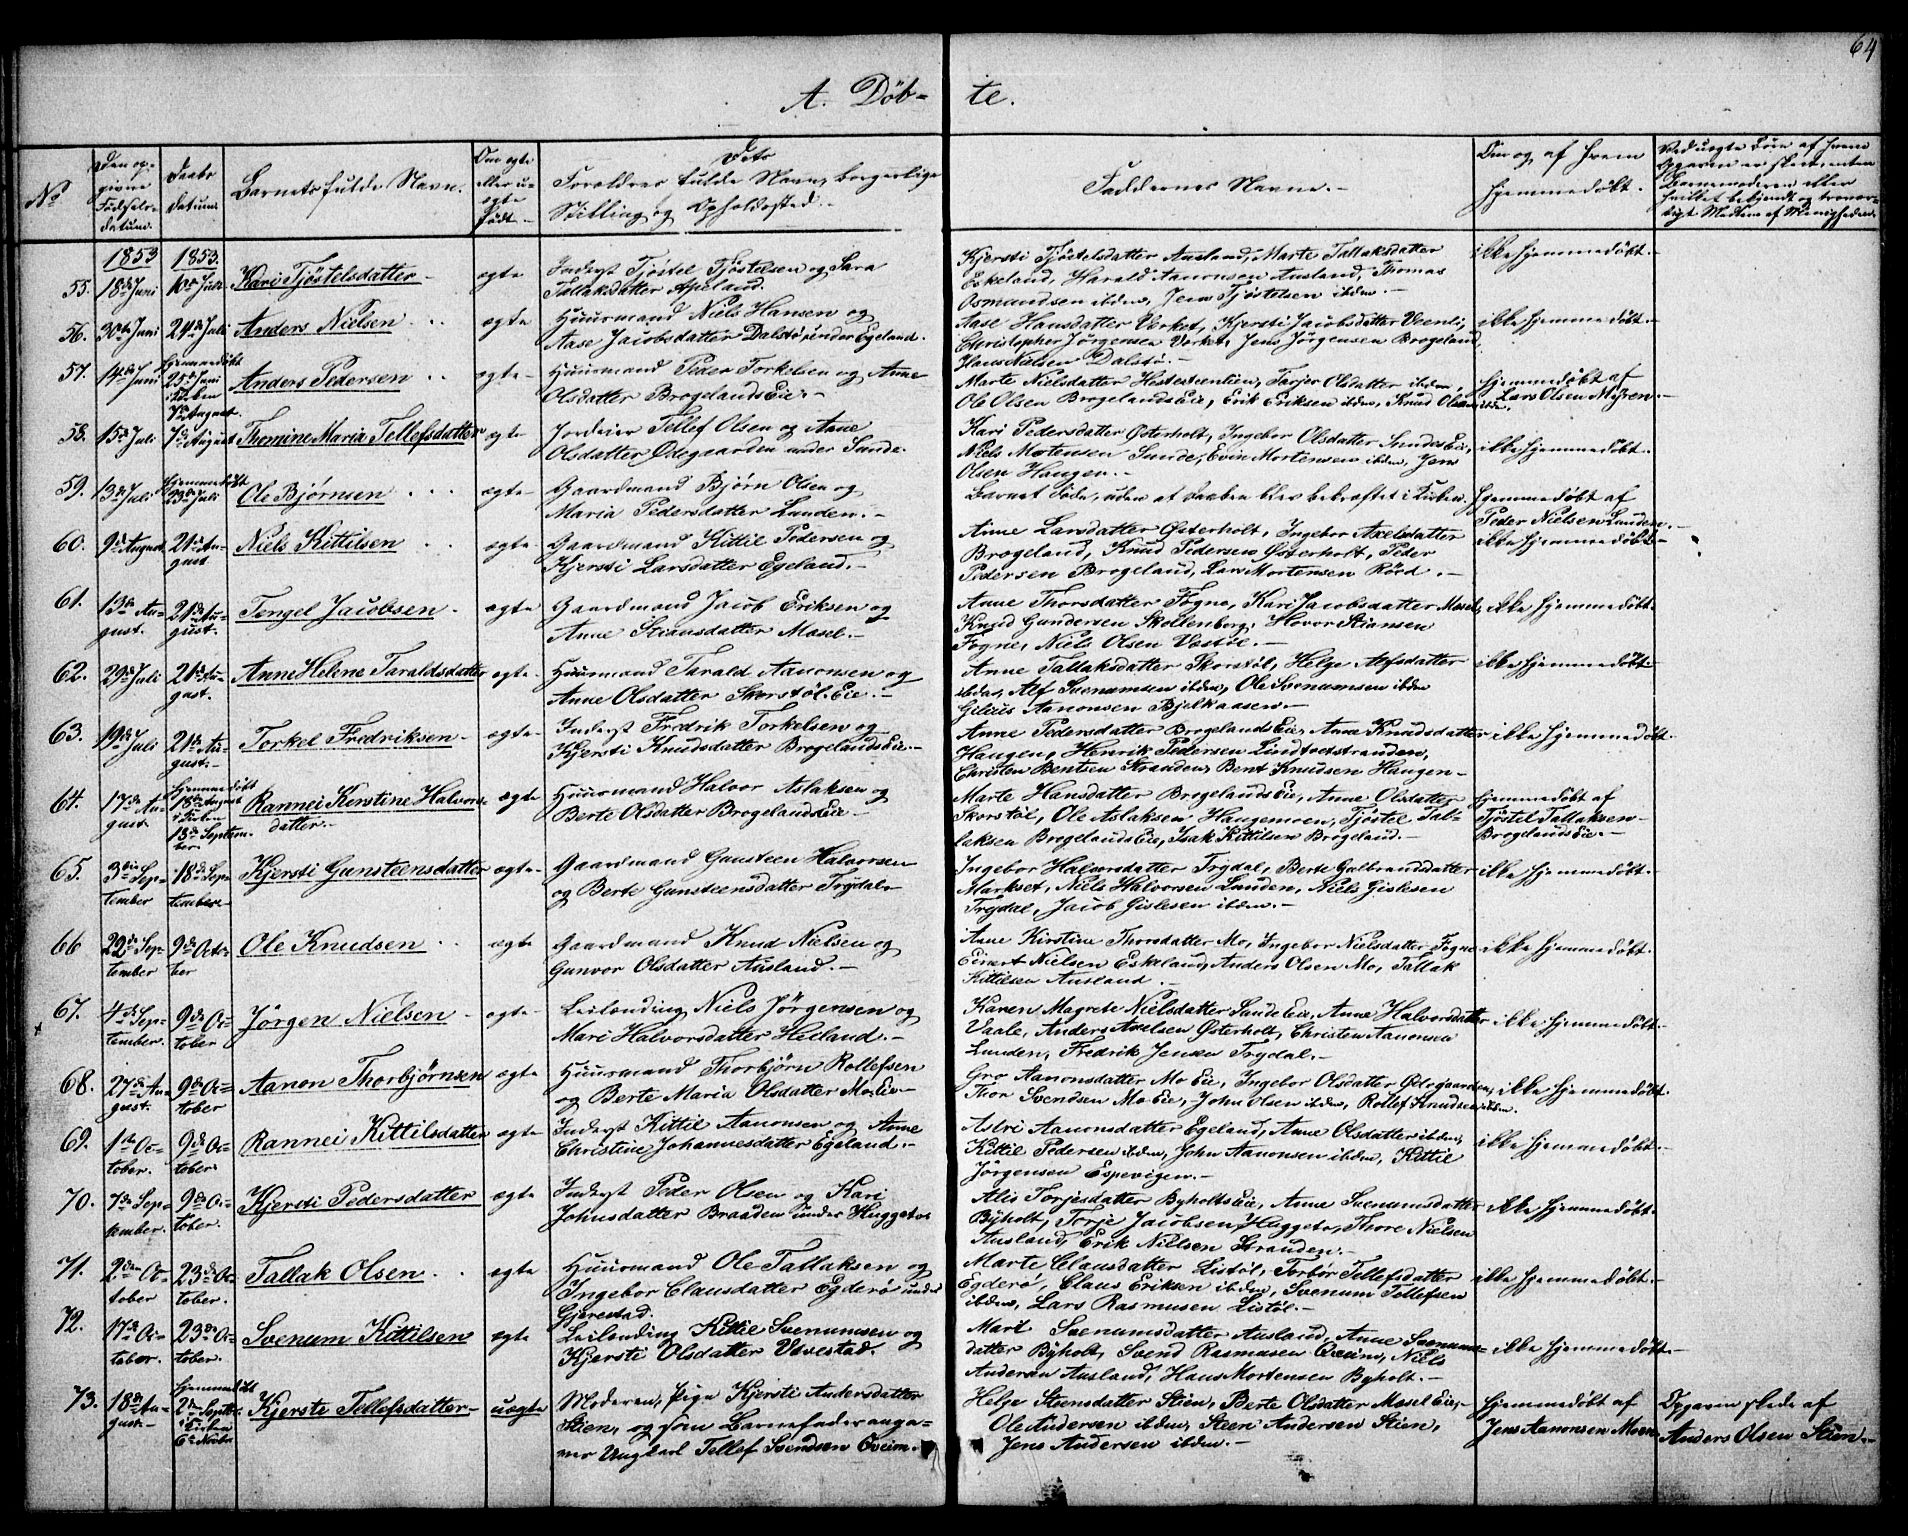 64
A. Døb- te.
No
Den op-
givne
Fødsels-
datum.
Daabs
datum.
Barnets fulde Navn.
Om ægte
eller u-
ægte
født.
Dets
Forældres fulde Navn, borgerlige
Stilling og Opholdssted.
Faddernes Navne.
Om og af hvem
hjemmedøbt.
Ved uægte Børn af hvem
Opgaven er skeet, enten
Barnemoderen eller
hvilket bekjendt og trovær-
digt Medlem af Menigheden.
1853 1853.
55. 18de Juni 10de Juli Kari Tjøstelsdatter ægte Inderst Tjøstel Tjøstelsen og Sara
Tallaksdatter Apeland.
Kjersti Tjöstelsdatter Ausland, Marte Tallaksdatter
Eskeland, Harald Aanonsen Ausland, Thomas
Osmundsen ibdm, Jens Tjøstelsen ibdm.
ikke hjemmedøbt.
56. 30te Juni 24de Juli Anders Nielsen ægte Huusmand Niels Hansen og
Aase Jacobsdatter Dalstø under Egeland.
Aase Hansdatter Verket, Kjersti Jacobsdatter Veenli,
Christopher Jörgensen Verket, Jens Jörgensen Brogeland,
Hans Nielsen Dalstø.
ikke hjemmedøbt.
57. 14de Juni hjemmedøbt
25de Juni
i Kirken
7de August.
Anders Pedersen ægte Huusmand Peder Torkelsen og Anne
Olsdatter Brogelands Eie.
Marte Nielsdatter Hestesteenlien, Tarjer Olsdatter ibdm,
Ole Olsen Brogelands Eie, Erik Eriksen ibdm, Knud Olsen ibdm.
hjemmedøbt af
Lars Olsen Myren.
58. 15de Juli 7de August Thomine Maria Tellefsdatter ægte Jordeier Tellef Olsen og Anne
Olsdatter Ødegaarden under Sunde.
Kari Pedersdatter Østerholt, Ingebor Olsdatter Sundes Eie,
Niels Mortensen Sunde, Evin Mortensen ibdm, Jens
Olsen Haugen.
ikke hjemmedøbt.
59. 13de Juli hjemmedøbt
23de Juli Ole Bjørnsen ægte Gaardmand Bjørn Olsen og
Maria Pedersdatter Lunden.
Barnet døde, uden at Daaben blev bekræftet i Kirken.
hjemmedøbt af
Peder Nielsen Lunden.
60. 9de August 21de Au-
gust. Niels Kittilsen ægte Gaardmand Kittil Pedersen og
Kjersti Larsdatter Egeland.
Anne Larsdatter Østerholt, Ingebor Axelsdatter
Brogeland, Knud Pedersen Østerholt, Peder
Pedersen Brogeland, Lars Mortensen Röed.
ikke hjemmedøbt.
61. 13de Au-
gust. 21de Au-
gust. Tengel Jacobsen ægte Gaardmand Jacob Eriksen og
Anne Stiansdatter Mosel.
Anne Thorsdatter Fogne, Kari Jacobsdatter Mosel,
Knud Gundersen Skollenborg, Hovor Stiansen
Fogne, Niels Olsen Vastøl.
ikke hjemmedøbt.
62. 29de Juli 21de Au-
gust. Anne Helene Taraldsdatter ægte Huusmand Tarald Aanonsen og
Anne Olsdatter Skorstöl Eie.
Anne Tallaksdatter Skorstöl, Helge Alfsdatter
ibdm, Alf Svenumsen ibdm, Ole Svenumsen ibdm
Gilius Aanonsen Bjelkaasen.
ikke hjemmedøbt.
63. 19de Juli 21de Au-
gust. Torkel Fredriksen ægte Inderst Fredrik Torkelsen og
Kjersti Knudsdatter Brogelands Eie.
Anne Pedersdatter Brogelands Eie, Anne Knudsdatter
Haugen, Henrik Pedersen Lindtveitstranden,
Christen Bentsen Stranden, Bent Knudsen Haugen
ikke hjemmedøbt.
64. 17de Au-
gust. hjemmedøbt
18de August
i Kirken
18de Septem-
ber. Rannei Kerstine Halvors-
datter. ægte Huusmand Halvor Aslaksen og
Berte Olsdatter Brogelands Eie.
Marte Hansdatter Brogelands Eie, Anne Olsdatter
Skorstöl, Ole Aslaksen Haugemoen, Tjøstel Tal-
laksen Brogelands Eie, Isak Kittilsen Brogeland.
hjemmedøbt af
Tjöstel Tallaksen
Brogelands Eie.
65. 3die Sep-
tember 18de Sep-
tember Kjersti Gunsteensdatter ægte Gaardmand Gunsteen Halvorsen
og Berte Gunsteensdatter Trydal.
Ingebor Halvorsdatter Trydal, Berte Gulbrandsdatter
Markset, Niels Halvorsen Lunden, Niels Gislesen
Trydal, Jacob Gislesen ibdm.
ikke hjemmedøbt.
66 22de Sep-
tember 9de Octo-
ber Ole Knudsen ægte Gaardmand Knud Nielsen og
Gunvor Olsdatter Ausland.
Anne Kirstine Thorsdatter Mo, Ingebor Nielsdatter Fogne
Eivert Nielsen Eskeland, Anders Olsen Mo, Tallak
Kittilsen Ausland.
ikke hjemmedøbt.
67. 4de Sep-
tember. 9de Oc-
tober Jørgen Nielsen ægte Leilending Niels Jørgensen og
Mari Halvorsdatter Heiland.
Karen Magrete Nielsdatter Sunde Eie, Anne Halvorsdatter
Vaale, Anders Axelsen Østerholt, Christen Aanonsen
Lunden, Fredrik Jensen Trydal.
ikke hjemmedøbt.
68. 27de Au-
gust. 9de Oc-
tober Aanon Thorbjørnsen ægte Huusmand Thorbjørn Rollefsen
og Berte Maria Olsdatter Mo Eie
Gro Aanonsdatter Mo Eie, Ingebor Olsdatter Ødegaarden,
Thor Svendsen Mo Eie, John Olsen ibdm, Rollef Knudsen ibdm.
ikke hjemmedøbt.
69. 1ste Oc-
tober. 9de Oc-
tober. Rannei Kittilsdatter ægte Inderst Kittil Aanonsen og Anne
Christine Johannesdatter Egeland.
Aslvi Aanonsdatter Egeland, Anne Olsdatter ibdm,
Kittil Pedersen ibdm, John Aanonsen ibdm, Kittil
Jörgensen Espevigen.
ikke hjemmedøbt.
70. 7de Sep-
tember. 9de Oc-
tober. Kjersti Pedersdatter ægte Inderst Peder Olsen og Kari
Johnsdatter Braaden under Huggets
Alis Torjesdatter Byholts Eie, Anne Svenumsdatter
Byholt, Torje Jacobsen Huggets, Thore Nielsen
Ausland, Erik Nielsen Stranden.
ikke hjemmedøbt.
71. 2den Oc-
tober 23de Oc-
tober. Tallak Olsen ægte Huusmand Ole Tallaksen og
Ingebor Clausdatter Egderö under
Gjerestad.
Marte Clausdatter Listöl, Torbör Tellefsdatter
Egderö, Claus Eriksen ibdm, Svenum Tellefsen
ibdm, Lars Rasmusen Listöl.
ikke hjemmedøbt.
72. 17de Oc-
tober. 23de Oc-
tober. Svenum Kittilsen ægte Leilending Kittil Svenumsen og
Kjersti Olsdatter Vevestad.
Mari Svenumsdatter Ausland, Anne Svenums-
datter Byholt, Svend Rasmusen Qveim, Niels
Andersen Ausland, Hans Mortensen Byholt.
ikke hjemmedøbt.
73. 18de Au-
gust. hjemmedøbt
2den Septbr
i Kirken
6te Novbr Kjerste Tellefsdatter uægte Moderen, Pige Kjersti Andersdatter
Stien, og som Barnefader anga-
ves Ungkarl Tellef Svendsen Qveim.
Helge Steensdatter Stien, Berte Olsdatter Mosel Eie,
Ole Andersen ibdm, Steen Andersen Stien,
Jens Andersen ibdm.
hjemmedøbt af
Jens Aanonsen Moen
Opgaven skede af
Anders Olsen Stien.